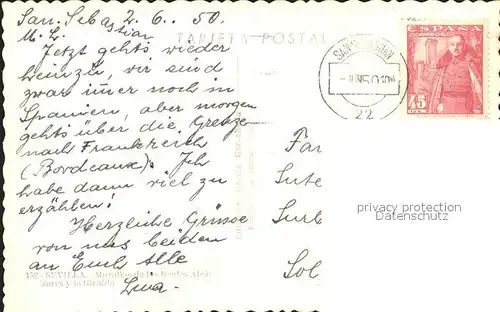 San. Sebastian 2.6.. 50.
M. L.
TARJETA POSTAL
Jetzt gehts wieder
heimzu, wir sind
zwar immer noch in
Spanien, aber morgen
gehts über die Grenze
nach Frankreich
(Bordeaux). Ich
habe dann viel zu
erzählen!
Herzliche Grüsse
von uns beiden
an Euch alle
Luxa.
152 - SEVILLA. Murallas de los Reales Alcá-
zares y la Giralda
SAN SEBASTIAN
JUN50
22
ESPAÑA
CORREOS
45
CTS
Fam
Sute
Surb
Sol
privacy protection
Datenschutz